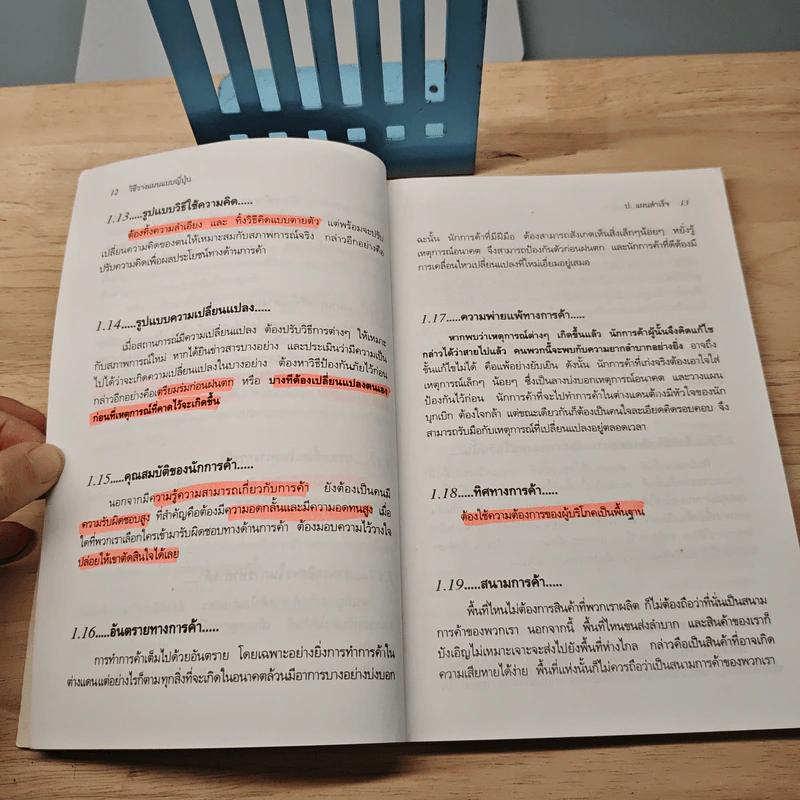 12 วิธีวางแผนแบบญี่ปุ่น
1.13.....รูปแบบวิธีใช้ความคิด.....
ต้องทิ้งความลำเอียง และ ทิ้งวิธีคิดแบบตายตัว แต่พร้อมจะปรับ
เปลี่ยนความคิดของตนให้เหมาะสมกับสภาพการณ์จริง กล่าวอีกอย่างคือ
ปรับความคิดเพื่อผลประโยชน์ทางด้านการค้า
1.14.....รูปแบบความเปลี่ยนแปลง.....
เมื่อสถานการณ์มีความเปลี่ยนแปลง ต้องปรับวิธีการต่างๆ ให้เหมาะ
กับสภาพการณ์ใหม่ หากได้ยินข่าวสารบางอย่าง และประเมินว่ามีความเป็น
ไปได้ว่าจะเกิดความเปลี่ยนแปลงในบางอย่าง ต้องหาวิธีป้องกันภัยไว้ก่อน
กล่าวอีกอย่างคือเตรียมร่มก่อนฝนตก หรือ บางทีต้องเปลี่ยนแปลงตนเอง
ก่อนที่เหตุการณ์ที่คาดไว้จะเกิดขึ้น
1.15.....คุณสมบัติของนักการค้า.....
นอกจากมีความรู้ความสามารถเกี่ยวกับการค้า ยังต้องเป็นคนมี
ความรับผิดชอบสูง ที่สำคัญคือต้องมีความอดกลั้นและมีความอดทนสูง เมื่อ
ใดที่พวกเราเลือกใครเข้ามารับผิดชอบทางด้านการค้า ต้องมอบความไว้วางใจ
ปล่อยให้เขาตัดสินใจได้เลย
1.16.....อันตรายทางการค้า.....
การทำการค้าเต็มไปด้วยอันตราย โดยเฉพาะอย่างยิ่งการทำการค้าใน
ต่างแดนแต่อย่างไรก็ตามทุกสิ่งที่จะเกิดในอนาคตล้วนมีอาการบางอย่างบ่งบอก
ป. แผนสำเร็จ 13
ฉะนั้น นักการค้าที่มีฝีมือ ต้องสามารถสังเกตเห็นสิ่งเล็กๆน้อยๆ หยั่งรู้
เหตุการณ์อนาคต จึงสามารถป้องกันตัวก่อนฝนตก และนักการค้าที่ดีต้องมี
การเคลื่อนไหวเปลี่ยนแปลงที่ใหม่เอี่ยมอยู่เสมอ
1.17.....ความพ่ายแพ้ทางการค้า.....
หากพบว่าเหตุการณ์ต่างๆ เกิดขึ้นแล้ว นักการค้าผู้นั้นจึงคิดแก้ไข
กล่าวได้ว่าสายไปแล้ว คนพวกนี้จะพบกับความยากลำบากอย่างยิ่ง อาจถึง
ขั้นแก้ไขไม่ได้ คือแพ้อย่างยับเยิน ดังนั้น นักการค้าที่เก่งจริงต้องเอาใจใส่
เหตุการณ์เล็กๆ น้อยๆ ซึ่งเป็นลางบ่งบอกเหตุการณ์อนาคต และวางแผน
ป้องกันไว้ก่อน นักการค้าที่จะไปทำการค้าในต่างแดนต้องมีหัวใจของนัก
บุกเบิก ต้องใจกล้า แต่ขณะเดียวกันก็ต้องเป็นคนใจละเอียดคิดรอบคอบ จึง
สามารถรับมือกับเหตุการณ์ที่เปลี่ยนแปลงอยู่ตลอดเวลา
1.18.....ทิศทางการค้า.....
ต้องใช้ความต้องการของผู้บริโภคเป็นพื้นฐาน
1.19.....สนามการค้า.....
พื้นที่ไหนไม่ต้องการสินค้าที่พวกเราผลิต ก็ไม่ต้องถือว่าที่นั่นเป็นสนาม
การค้าของพวกเรา นอกจากนี้ พื้นที่ไหนขนส่งลำบาก และสินค้าของเราก็
บังเอิญไม่เหมาะเจาะจะส่งไปยังพื้นที่ห่างไกล กล่าวคือเป็นสินค้าที่อาจเกิด
ความเสียหายได้ง่าย พื้นที่แห่งนั้นก็ไม่ควรถือว่าเป็นสนามการค้าของพวกเรา